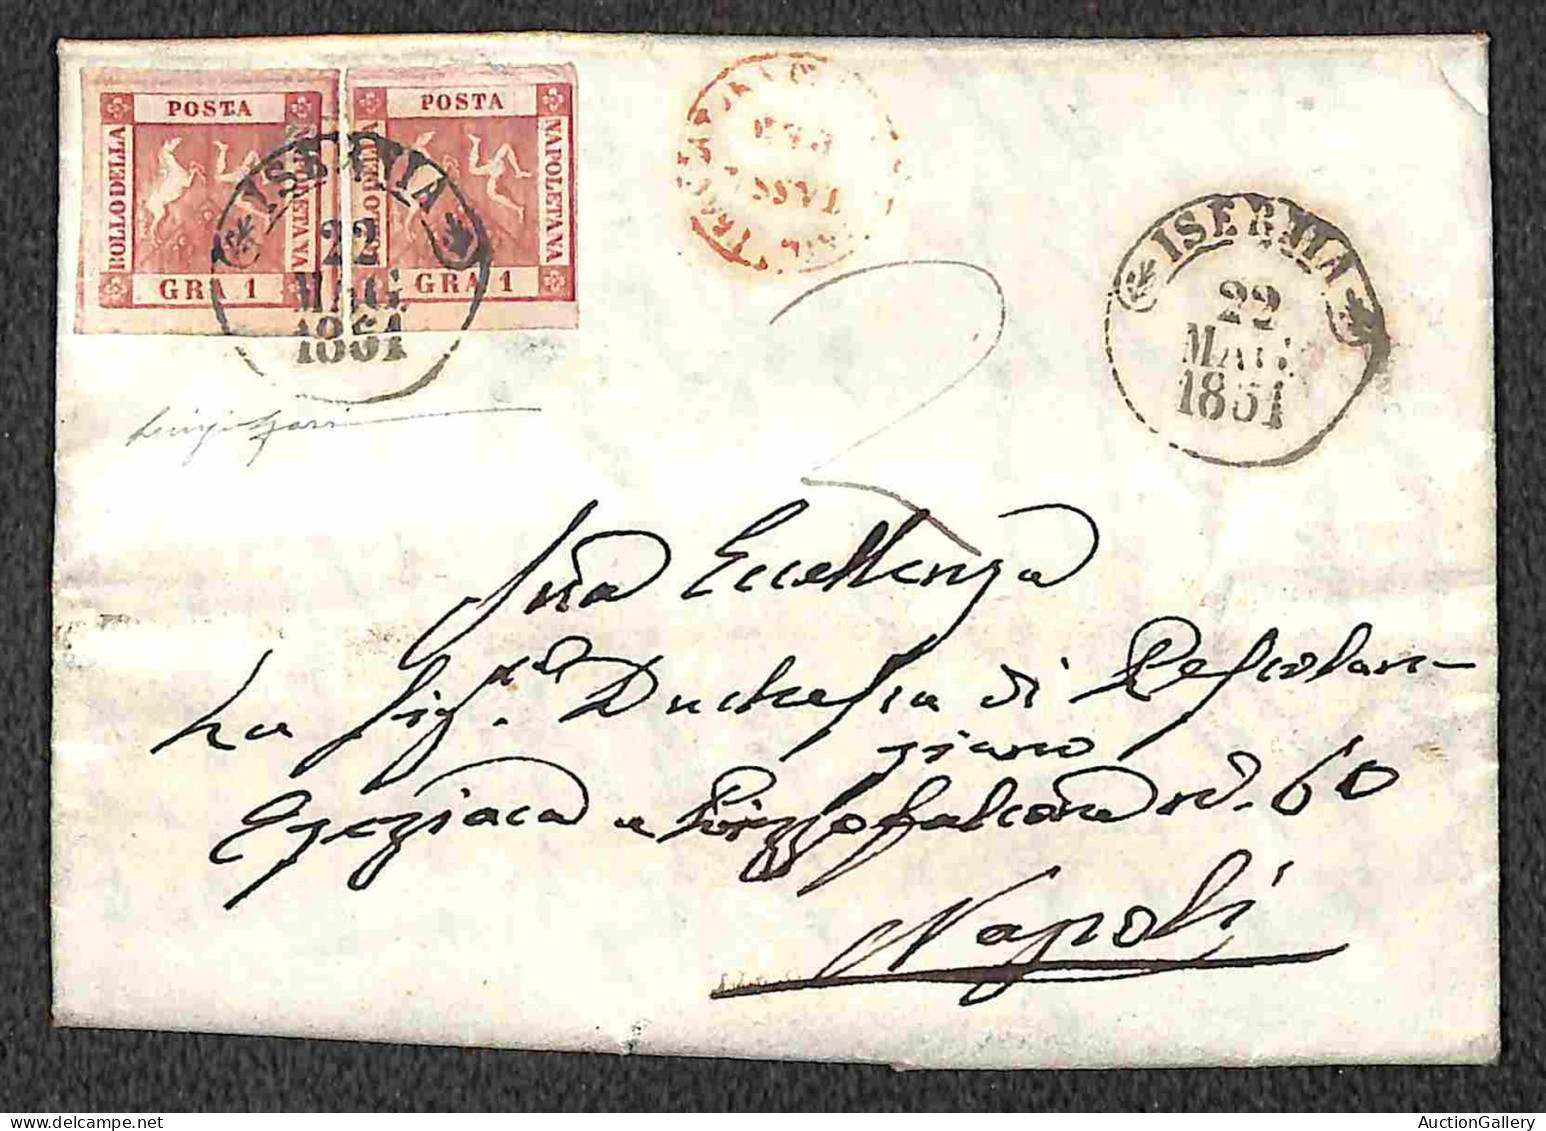 POSTA
BOLLO DELLA
NAPOLETANA
GRA 1
POSTA
BOLLO DELLA
NAPOLETANA
GRA 1
ISERNIA
22
MAG
1861
ISERNIA
22
MAG
1861
2
Sua Eccellenza
La Sig.ra Duchessa di Pescolan-
ciano
Egiziaca a Pizzofalcone N. 60
Napoli
AuctionGallery